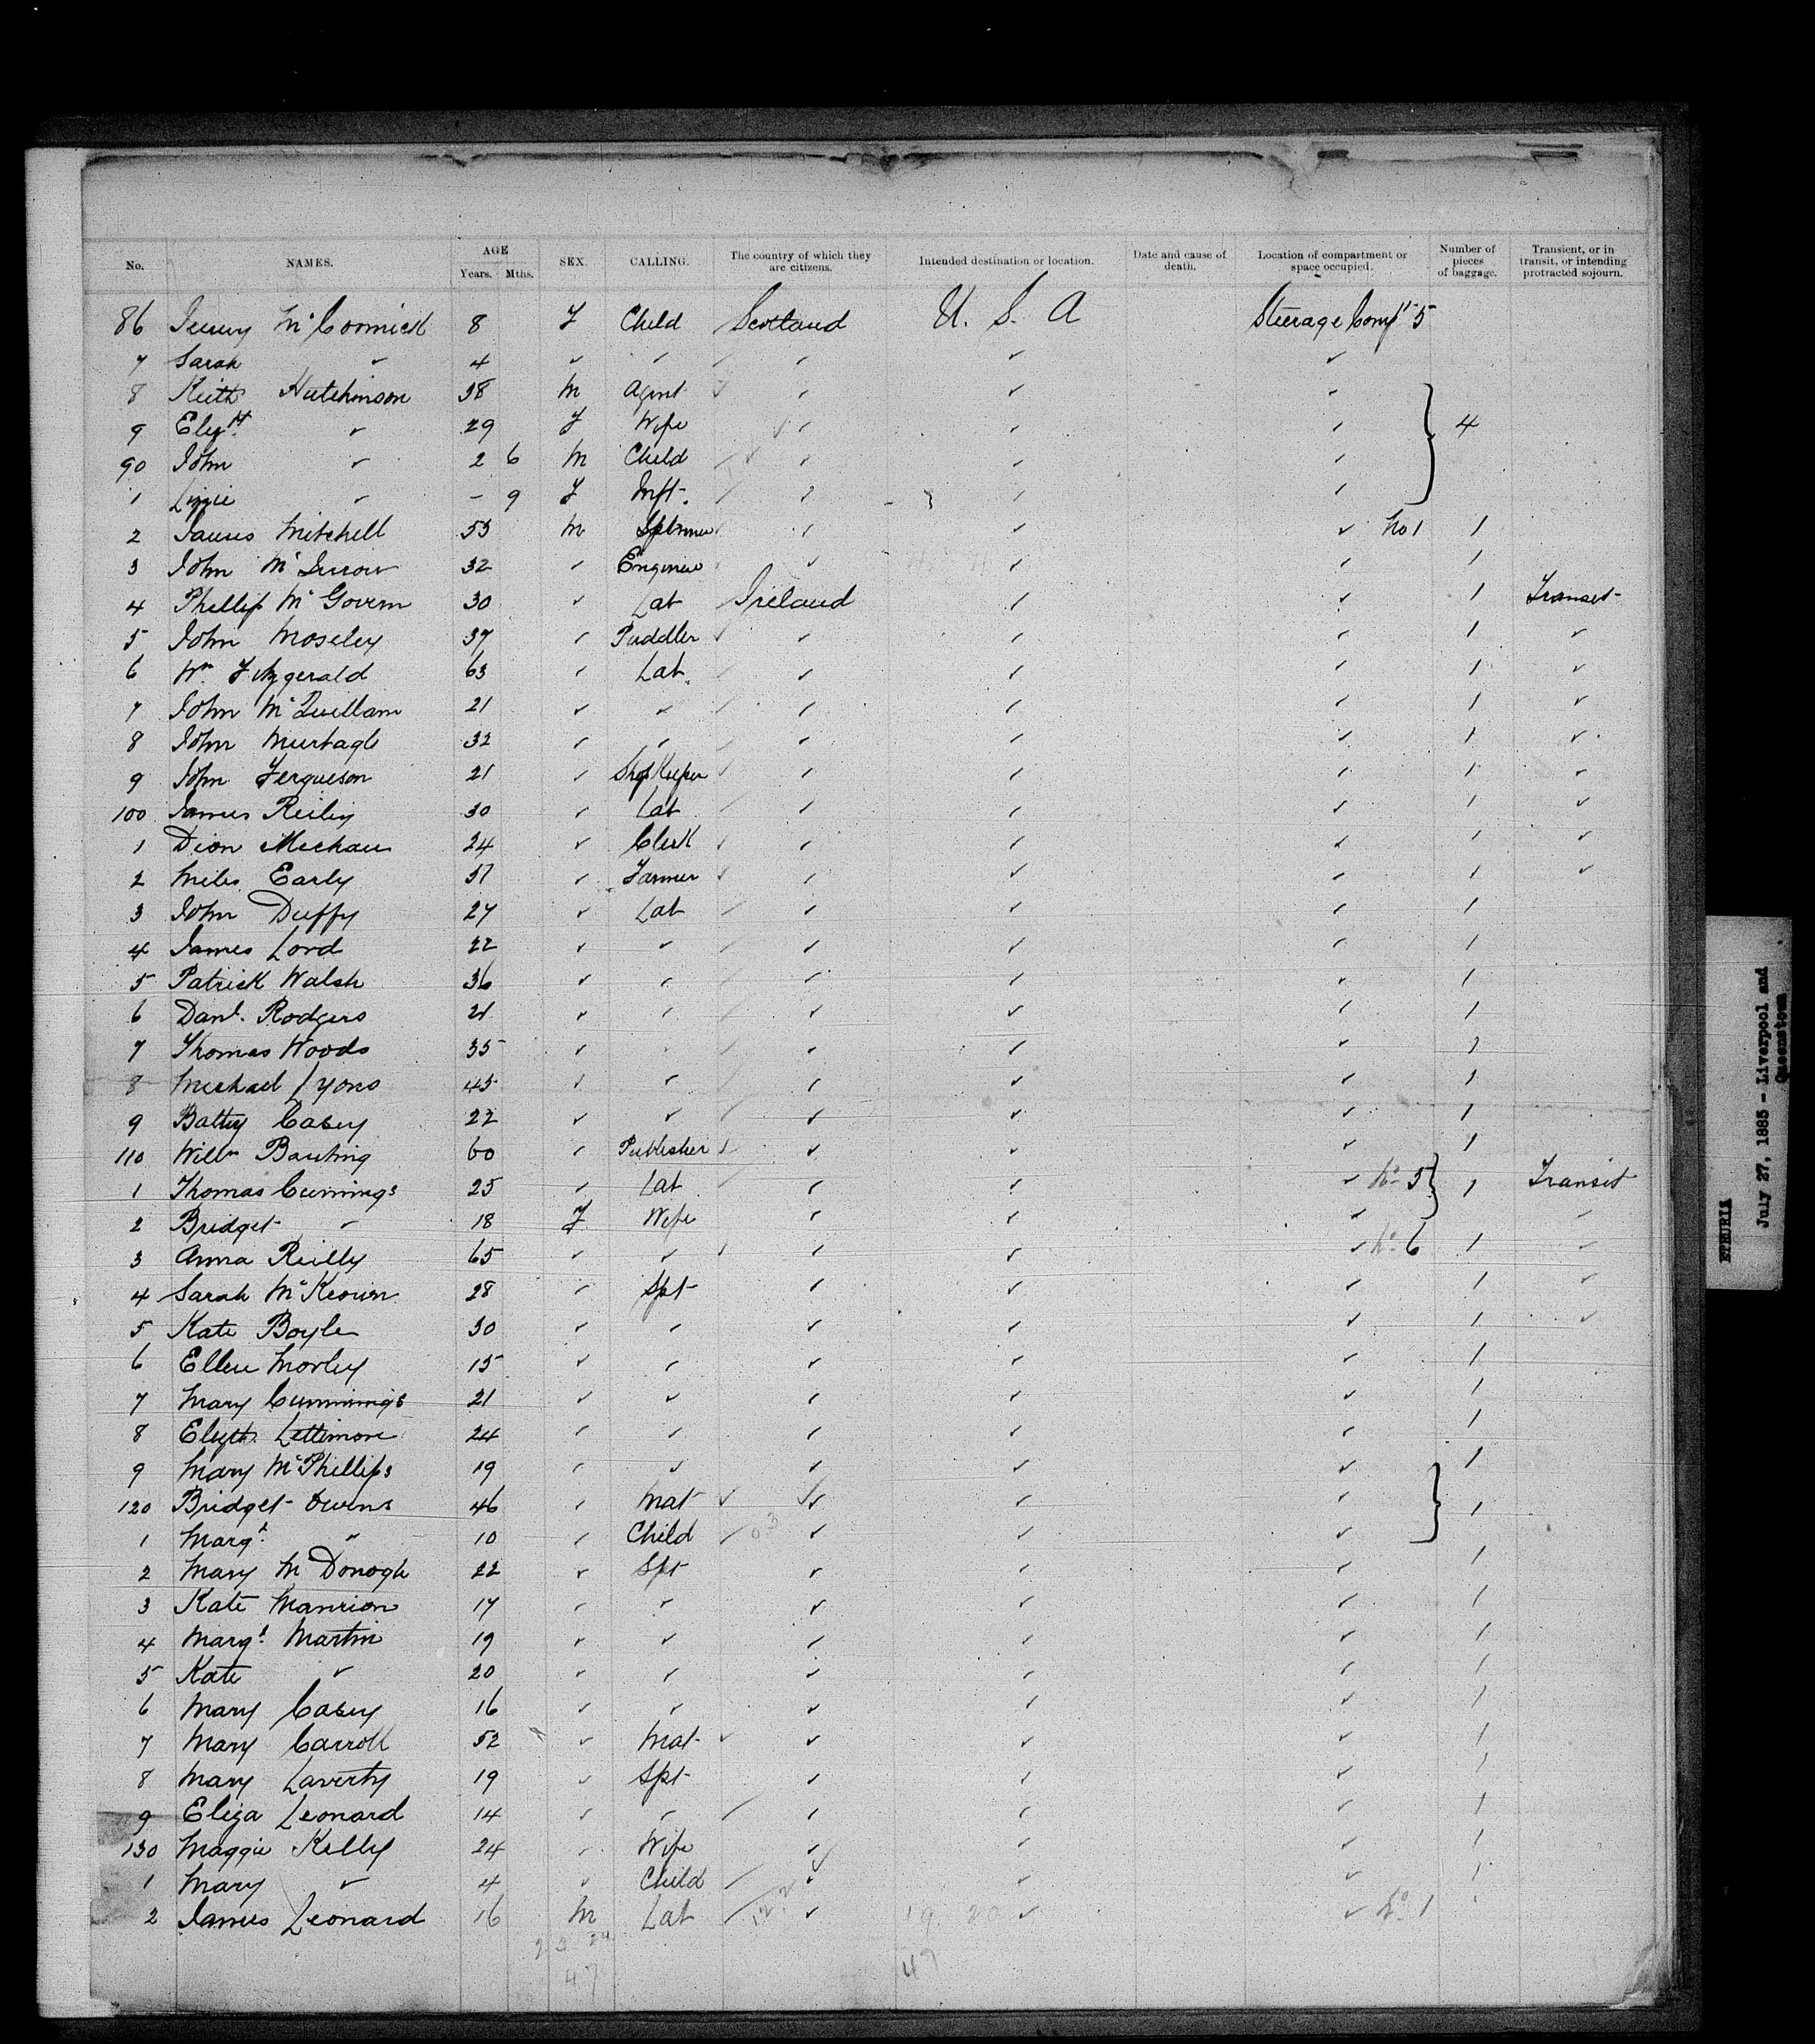 No. NAMES. AGE Years. Mths. SEX. CALLING. The country of which they are citizens. Intended destination or location. Date and cause of death. Location of compartment or space occupied. Number of pieces of baggage. Transient, or in transit, or intending protracted sojourn.
86 Jenny McCormick 8 F Child Scotland U. S. A Steerage Compt 5
7 Sarah " 4 " " " " "
8 Keith Hutchinson 38 M Agent " " "
9 Elizth " 29 F Wife " " " 4
90 John " 2 6 M Child " " "
1 Lizzie " - 9 F Inft. " " "
2 James Mitchell 53 M " " " No 1 1
3 John 32 " Engineer " " " 1
4 Phillip McGovern 30 " Lab Ireland " " 1 Transit
5 John Moseley 37 " Puddler " " " 1 "
6 Wm Fitzgerald 63 " Lab. " " " 1 "
7 John McQuillam 21 " " " " " 1 "
8 John Murtagh 32 " " " " " 1 "
9 John Fergueson 21 " Shop Keeper " " " 1 "
100 James Reiley 30 " Lab " " " 1 "
1 Dion 24 " Clerk " " " 1 "
2 Miles Early 37 " Farmer " " " 1 "
3 John Duffy 27 " Lab " " " 1
4 James Lord 22 " " " " " 1
5 Patrick Walsh 36 " " " " " 1
6 Danl. Rodgers 21 " " " " " 1
7 Thomas Woods 35 " " " " " 1
8 Michael Lyons 45 " " " " " 1
9 Batty Casey 22 " " " " " 1
110 Willm 60 " Publisher " " " 1
1 Thomas Cummings 25 " Lab " " " No 5 1 Transit
2 Bridget " 18 F Wife " " " "
3 Anna Reilly 65 " " " " " No 6 1 "
4 Sarah McKeown 28 " Spt " " " 1 "
5 Kate Boyle 30 " " " " " 1 "
6 Ellen Morley 15 " " " " " 1
7 Mary Cummings 21 " " " " " 1
8 Elizth. Lettimore 24 " " " " " 1
9 Mary McPhillips 19 " " " " " 1
120 Bridget Owens 46 " Mat " " " 1
1 Margt. " 10 " Child " " "
2 Mary McDonogh 22 " Spt " " " 1
3 Kate Mannion 17 " " " " " 1
4 Margt. Martin 19 " " " " " 1
5 Kate " 20 " " " " " 1
6 Mary Casey 16 " " " " " 1
7 Mary Carroll 52 " Mat " " " 1
8 Mary Laverty 19 " Spt " " " 1
9 Eliza Leonard 14 " " " " " 1
130 Maggie Kelly 24 " Wife " " " 1
1 Mary " 4 " Child " " " 1
2 James Leonard 16 M Lab " " " No 1 1
23 24
47
47
ETRURIA
July 27, 1885 - Liverpool and
Queenstown